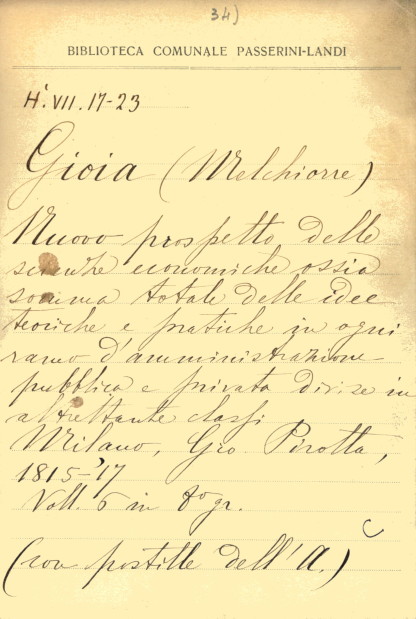 34)
BIBLIOTECA COMUNALE PASSERINI-LANDI
H'. VII. 17-23
Gioia (Melchiorre)
Nuovo prospetto delle
scienze economiche ossia
somma totale delle idee
teoriche e pratiche in ogni
ramo d'amministrazione
pubblica e privata divise in
altrettante classi
Milano, Gio Pirotta,
1815-'17
Voll. 6 in 8º gr.
(con postille dell'A.)